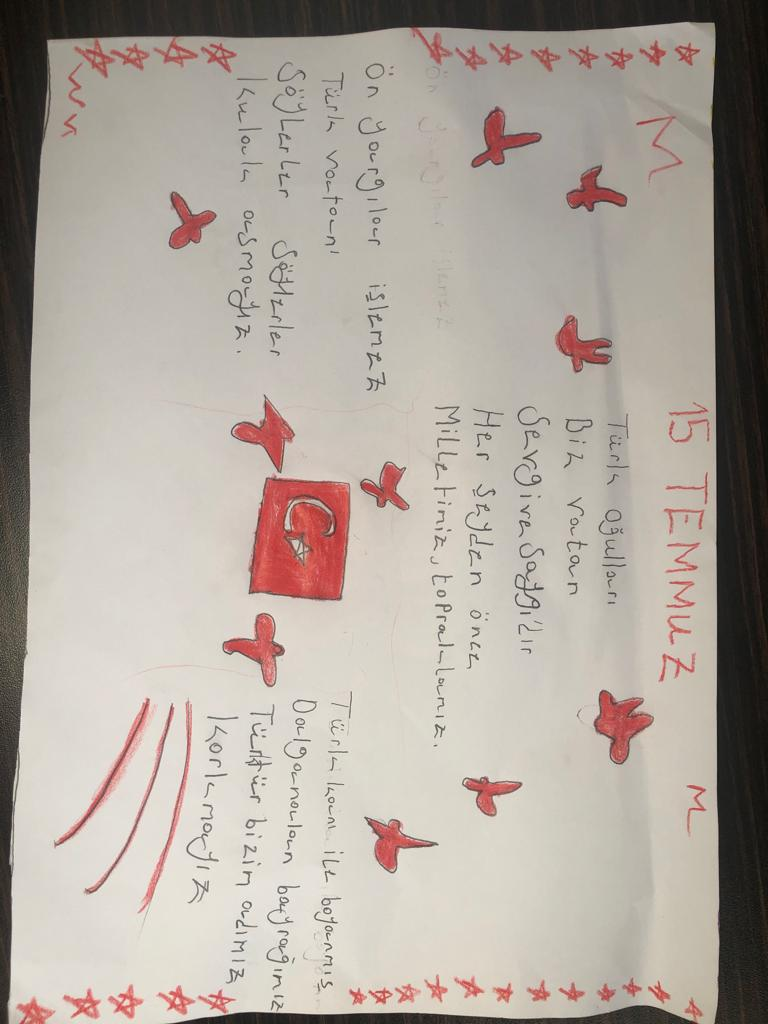 15 TEMMUZ
Türk oğulları
Biz vatan
Sevgive Saygı'dır
Her şeyden önce
Milletimiz, topraklarımız.
Ön yargılar işlemez
Ön yargılar işlemez
Türk vatanı
Söylerler Söylerler
Kulak asmayız.
Türk kanı ile boyanmış
Dalgalanan bayrağımız
Türktür bizim adımız
Korkmayız